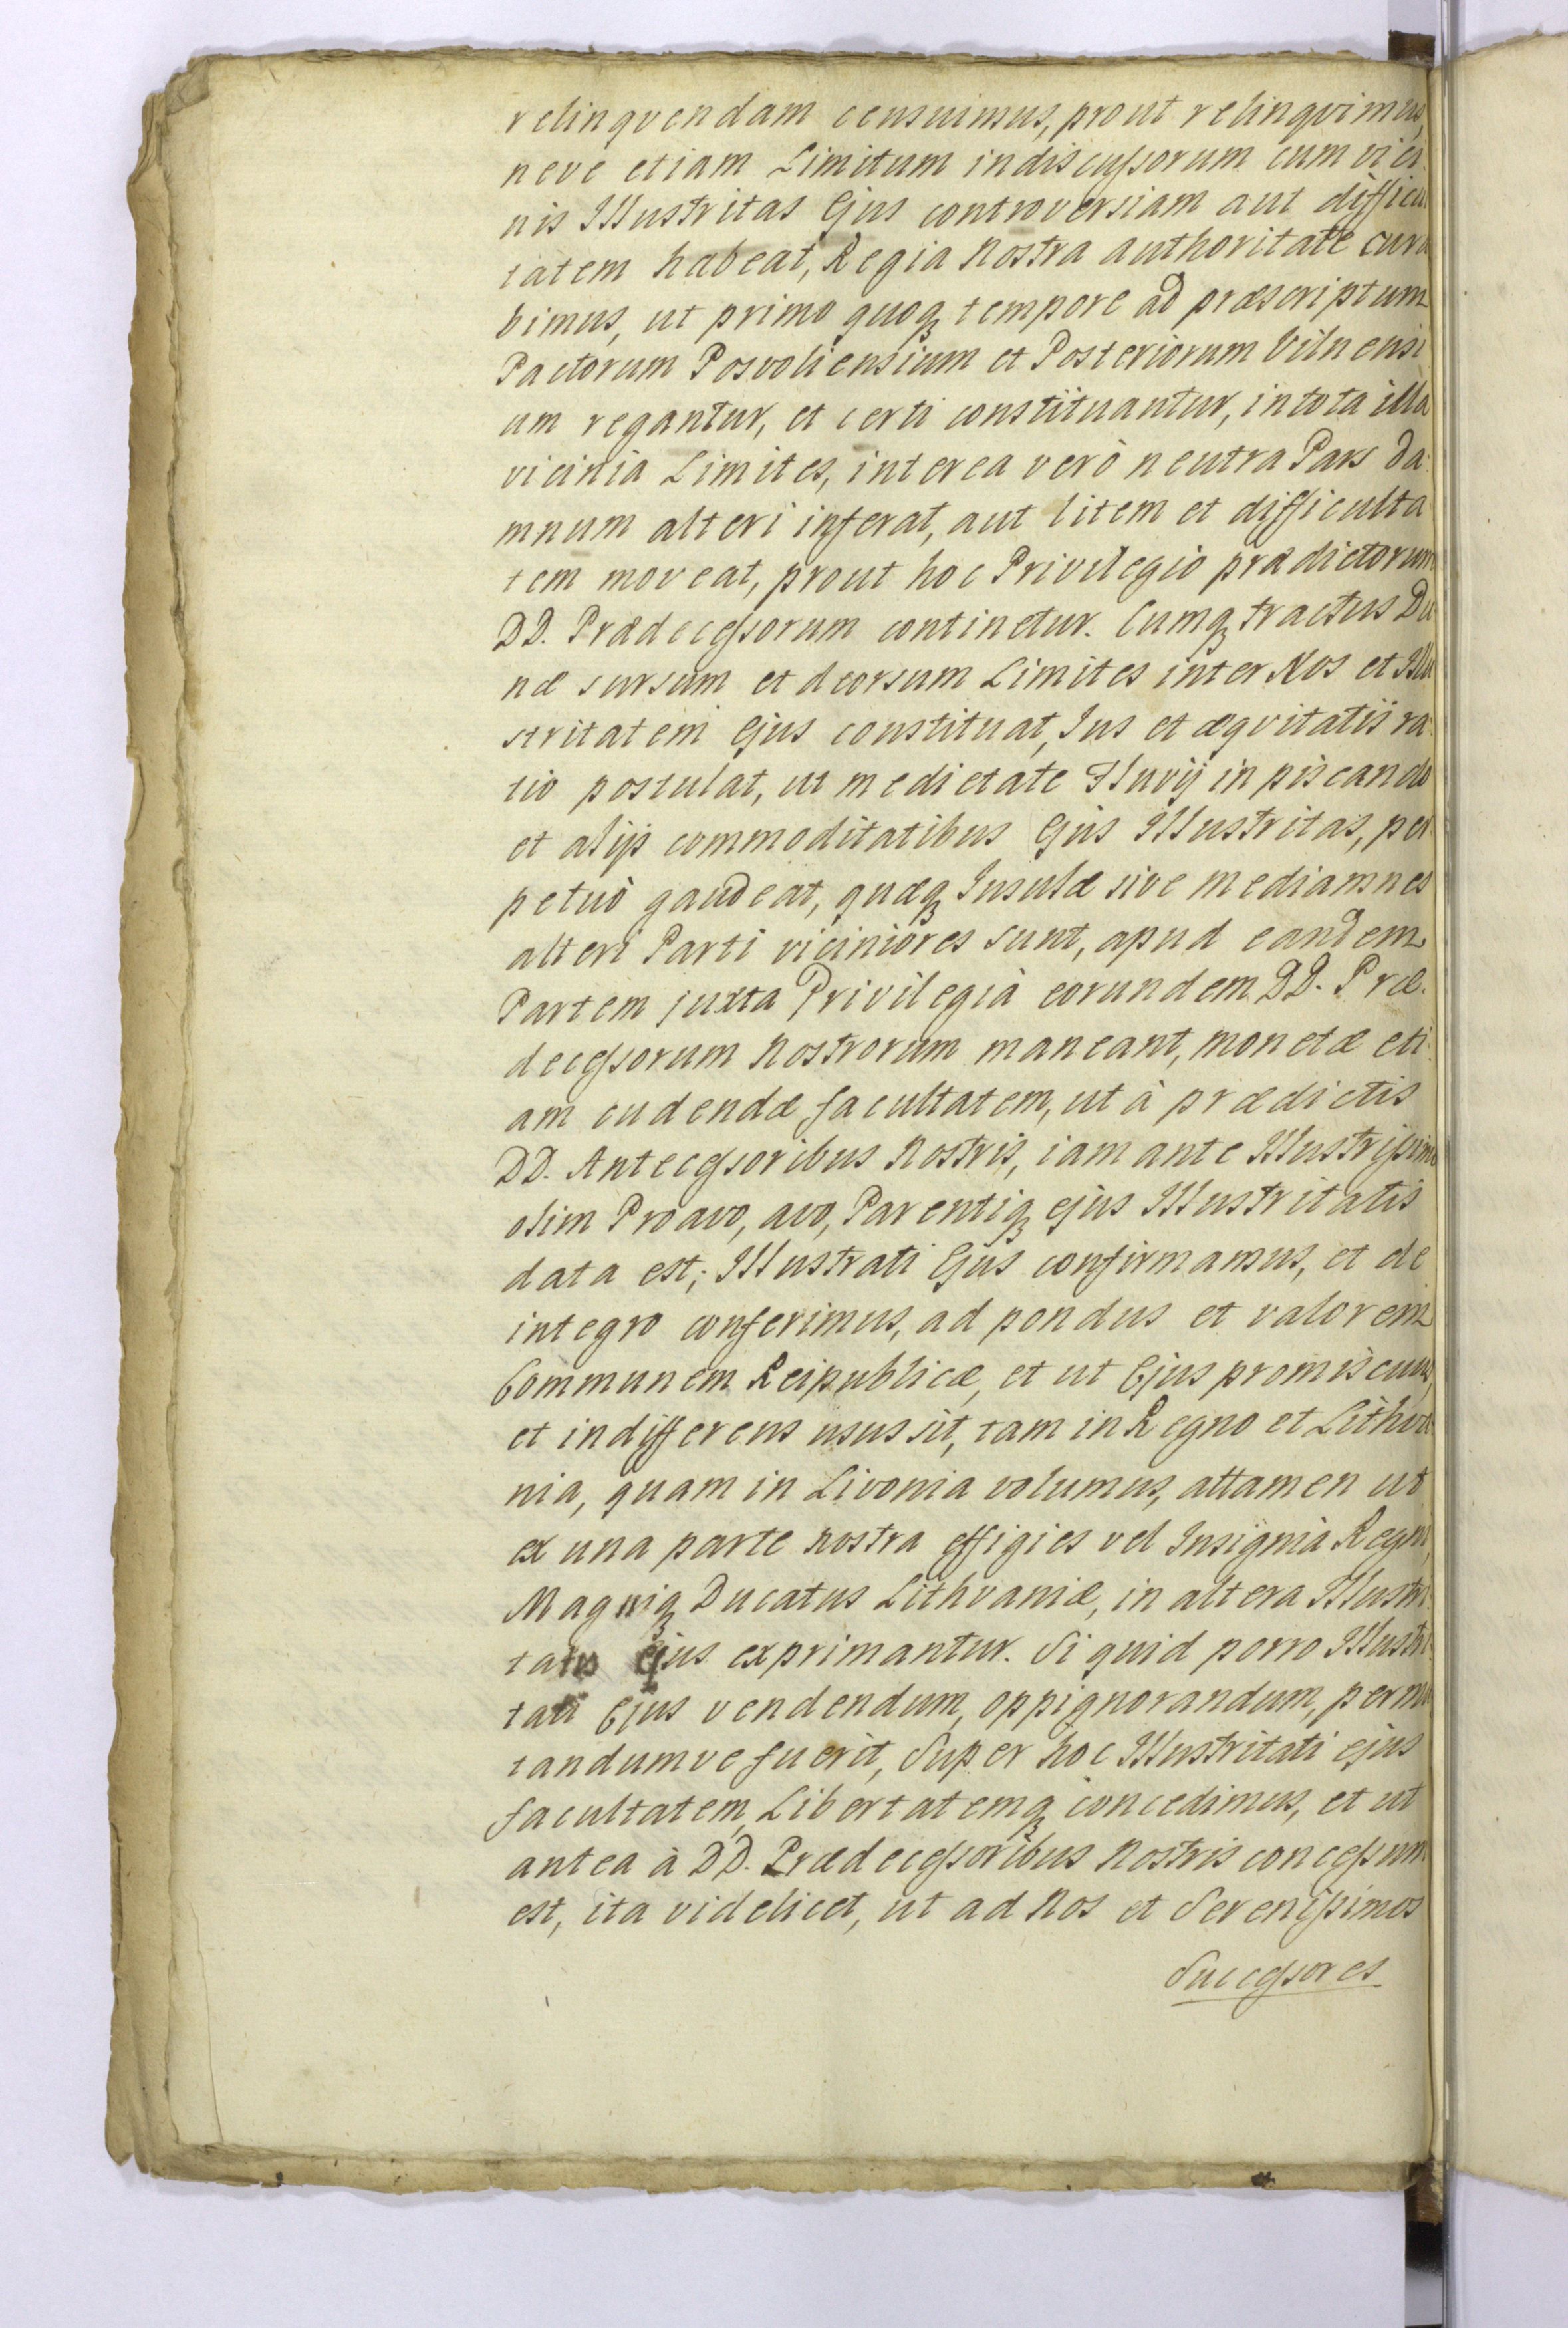 relinqvendam censuimus, prout relinqvimus,
neve etiam Limitum indiscussorum cum vici:
nis Illustritas Ejus controversiam aut difficul
tatem habeat, Regia Nostra authoritate cura
bimus, ut primo quoqȝ tempore ad præscriptum
Pactorum Posvoliensium et Posteriorum Vilnensi
um regantur, et certi constituantur, in tota illa
vicinia Limites, interea verò neutra Pars da:
mnum alteri inferat, aut litem et difficulta
tem moveat, prout hoc Privilegio prædictorum
DD. Prædecessorum continetur. Cumqȝ tractus Du
næ sursum et deorsum Limites inter Nos et Illu
stritatem Ejus constituat, Jus et æqvitatis ra:
tio postulat, ut medietate Fluvij in piscando
et alijs commoditatibus Ejus Illustritas, per
petuò gaudeat, quæqȝ Insulæ sive mediamnes
alteri Parti viciniores sunt, apud eandem
Partem juxta Privilegia eorundem DD. Præ:
decessorum Nostrorum maneant, monetæ eti
am cudendæ facultatem, ut à prædictis
DD. Antecessoribus Nostris, iam ante Illustrissimo
olim Proavo, avo, Parentiqȝ ejus Illustritatis
data est; Illustrati Ejus confirmamus, et de
integro conferimus, ad pondus et valorem
Communem Reipublicæ, et ut Ejus promiscuus,
et indifferens usus sit, tam in Regno et Lithva
nia, quam in Livonia volumus, attamen ut
ex una parte nostra effigies vel Insignia Regni,
Magniqȝ Ducatus Lithvaniæ, in altera Illustri:
tatis Ejus exprimantur. Si quid porro Illustri:
tati Ejus vendendum, oppignorandum, permu
tandumve fuerit, Super hoc Illustritati ejus
facultatem, Libertatemqȝ concedimus, et ut
antea à DD. Prædecessoribus Nostris concessum
est, ita videlicet, ut ad Nos et Serenissimos
Successores